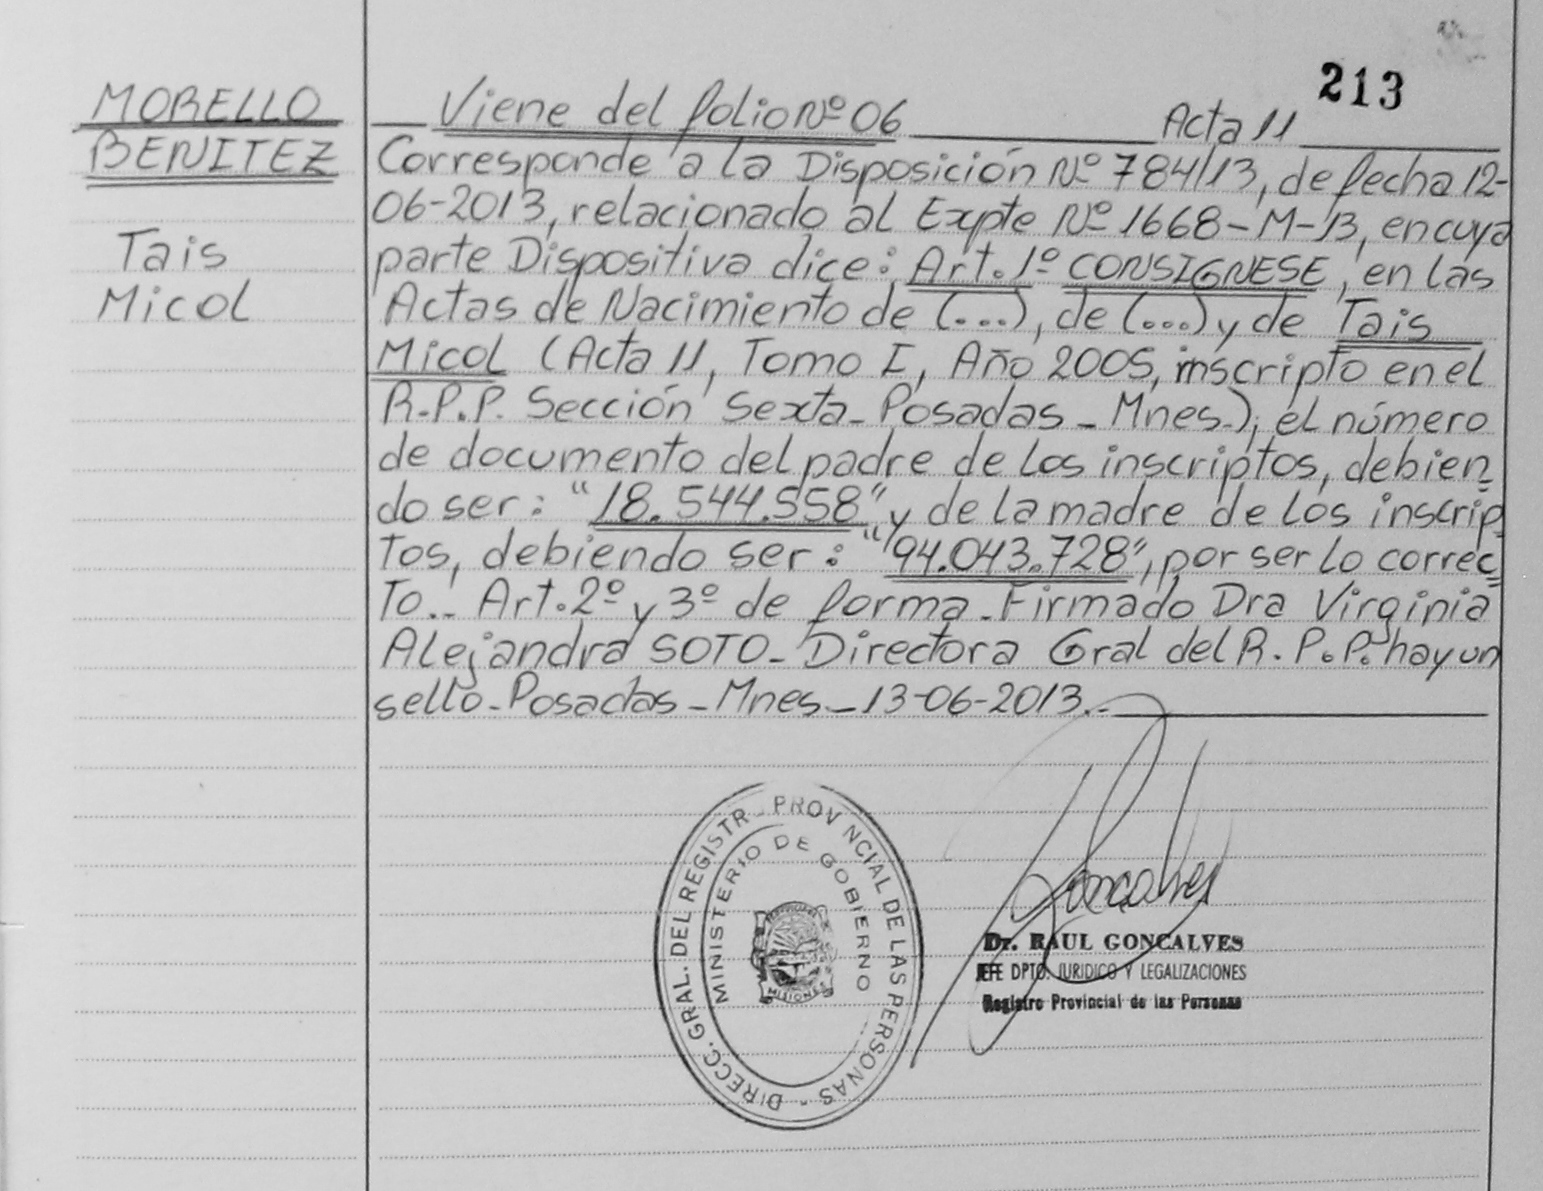 213
MORELLO
BENITEZ
Tais
Micol
Viene del folio Nº 06 Acta 11
Corresponde a la Disposición Nº 784/13, de fecha 12-
06-2013, relacionado al Expte Nº 1668-M-13, en cuya
parte Dispositiva dice: Art. 1º CONSIGNESE, en las
Actas de Nacimiento de (...), de (...) y de Tais
Micol (Acta 11, Tomo I, Año 2005, inscripto en el
R.P.P. Sección Sexta_Posadas_Mnes.), el número
de documento del padre de los inscriptos, debien
do ser: "18.544.558" y de la madre de los inscrip
tos, debiendo ser: "94.043.728", por ser lo correc
to._ Art. 2º y 3º de forma_Firmado Dra Virginia
Alejandra SOTO_Directora Gral del R.P.P. hay un
sello_Posadas_Mnes_13-06-2013._
DIRECC. GRAL. DEL REGISTR PROVINCIAL DE LAS PERSONAS -
MINISTERIO DE GOBIERNO
MISIONES
Goncalves
Dr. RAUL GONCALVES
JEFE DPTO. JURIDICO Y LEGALIZACIONES
Registro Provincial de las Personas